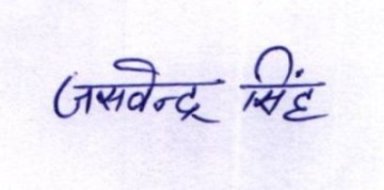 जसवेन्द्र सिंह